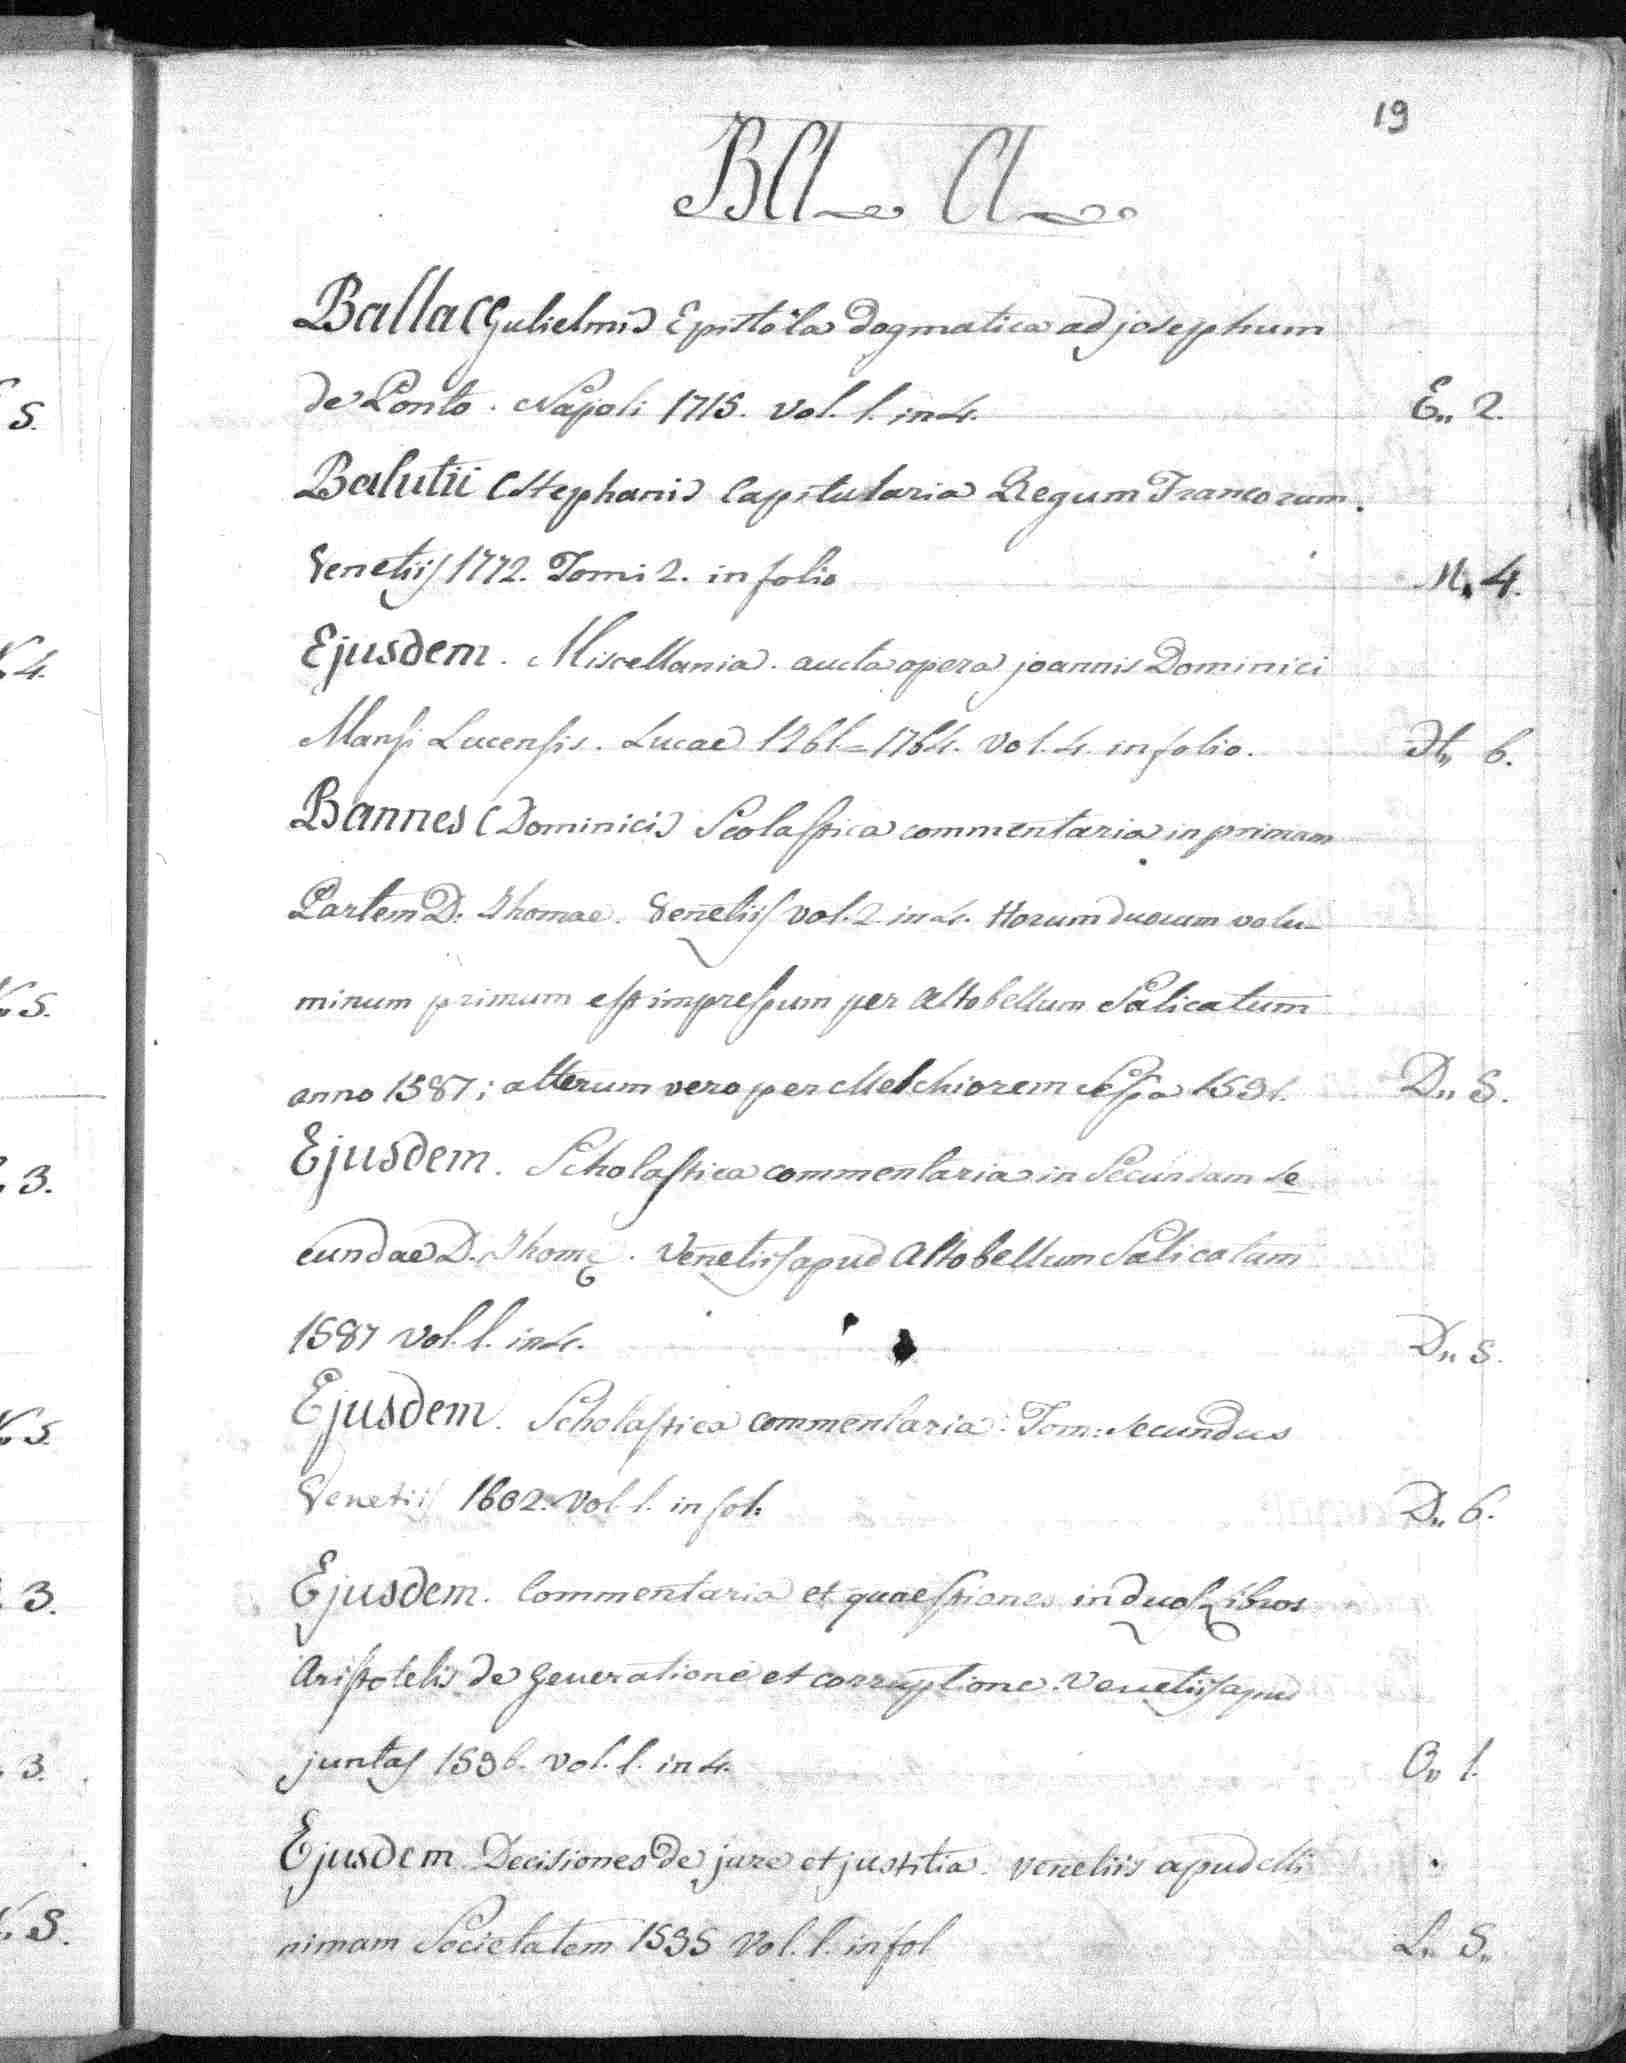 19
BA A
5.
4.
5.
3.
5.
3.
3.
5.
Balla (Gulielmi) Epistola Dogmatica ad josephum
de Ponto. Napoli 1715. vol. 1. in 4. E,, 2.
Balutii (Stephani) Capitularia Regum Francorum.
Venetiis 1772. Tomi 2. in folio M,, 4.
Ejusdem. Miscellania. aucta opera joannis Dominici
Mansi Lucensis. Lucae 1761=1764. vol. 4. in folio. H,, 6.
Bannes (Dominici) Scolastica commentaria in primam
Partem D. Thomae. Venetiis vol. 2 in 4. Horum duorum volu-
minum primum est impressum per Altobellum Salicatum
anno 1587; alterum vero per Melchiorem Sessa 1591. D,, 5.
Ejusdem. Scholastica commentaria in Secundam se
cundae D. Thomę. Venetiis apud Altobellum Salicatum
1587 vol. 1. in 4. D,, 5.
Ejusdem. Scholastica commentaria. Tom: secundus
Venetiis 1602. vol. 1. in fol: D,, 6.
Ejusdem. Commentaria et quaestiones in duos Libros
Aristotelis de Generatione et corruptione. Venetiis apud
juntas 1596. vol. 1. in 4. O,, 1.
Ejusdem Decisiones De jure et justitia. venetiis apud Mi
nimam Societatem 1595 vol. 1. in fol L,, 5,,